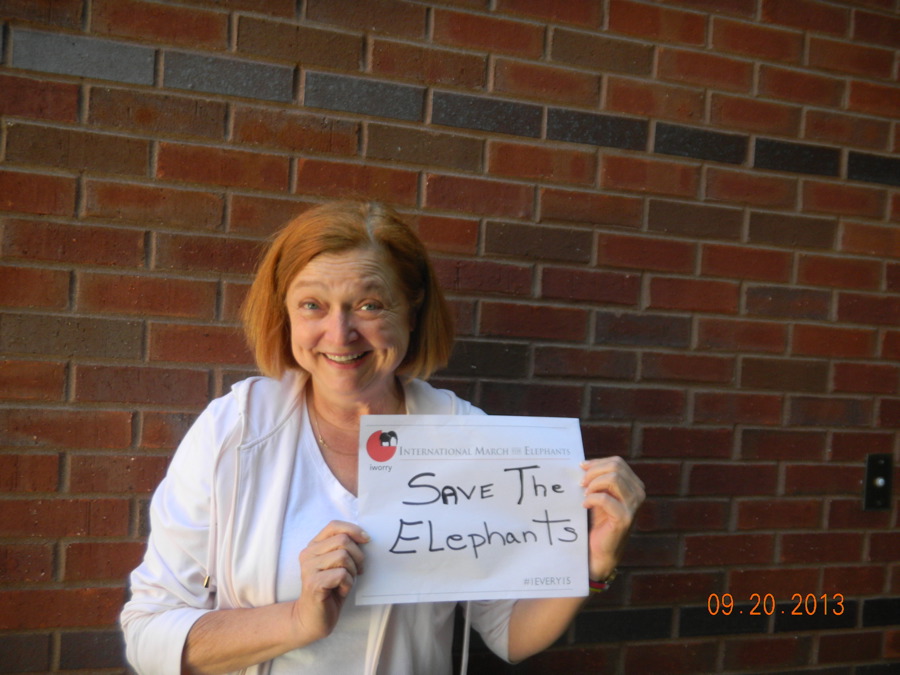 INTERNATIONAL MARCH FOR ELEPHANTS
iworry
SAVE The
ELephanTs
#1EVERY15
09.20.2013